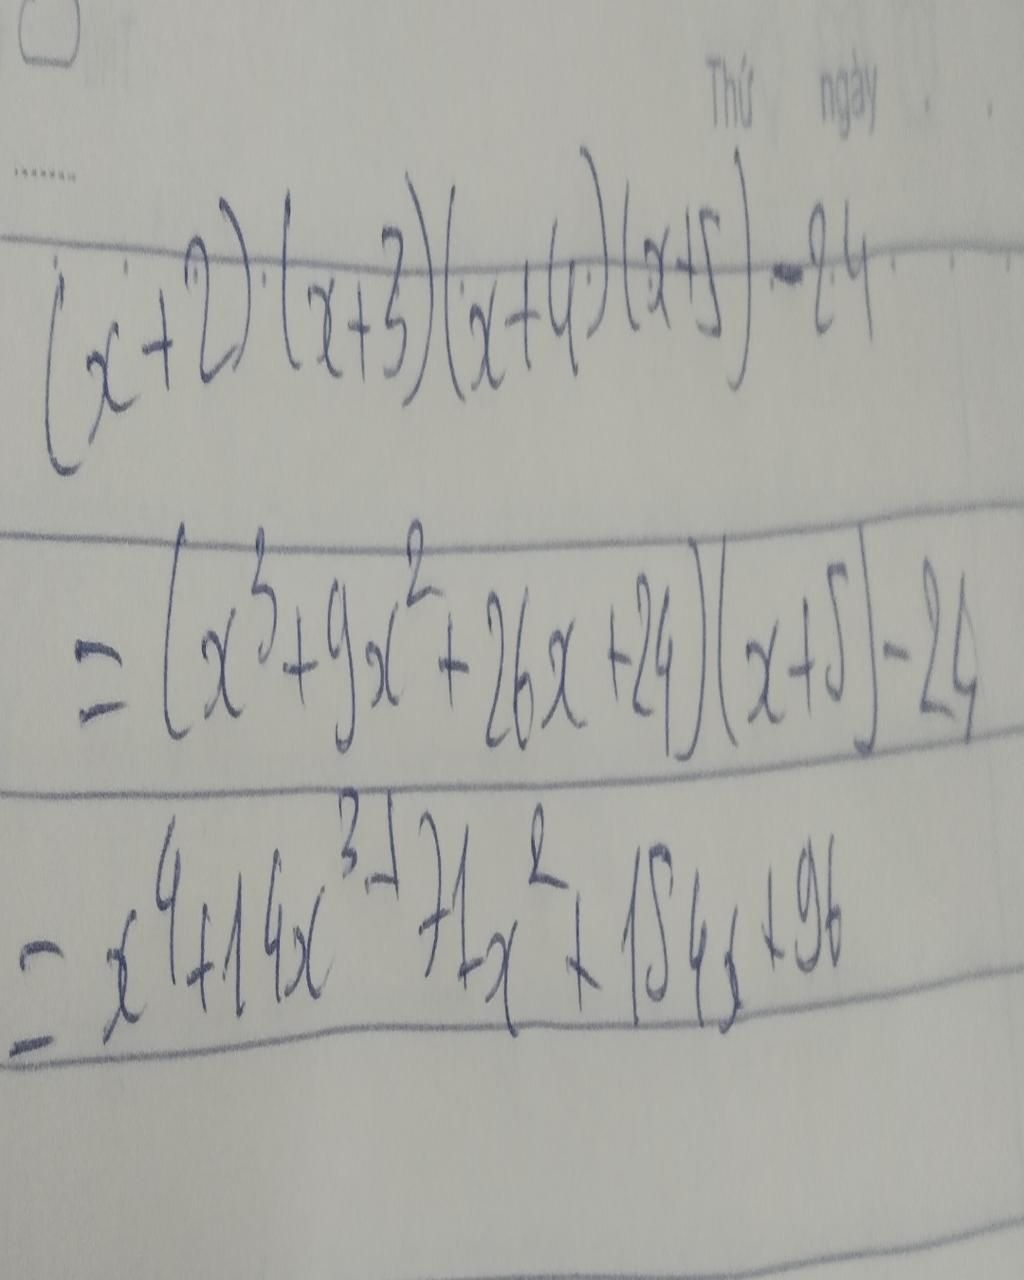 Thứ ngày
(x+2)(x+3)(x+4)(x+5)-24
= (x³+9x²+26x+24)(x+5)-24
= x⁴+14x³+71x²+154x+96